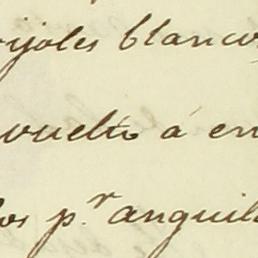 ijoles blancos
vuelto á en
los p.r anguil